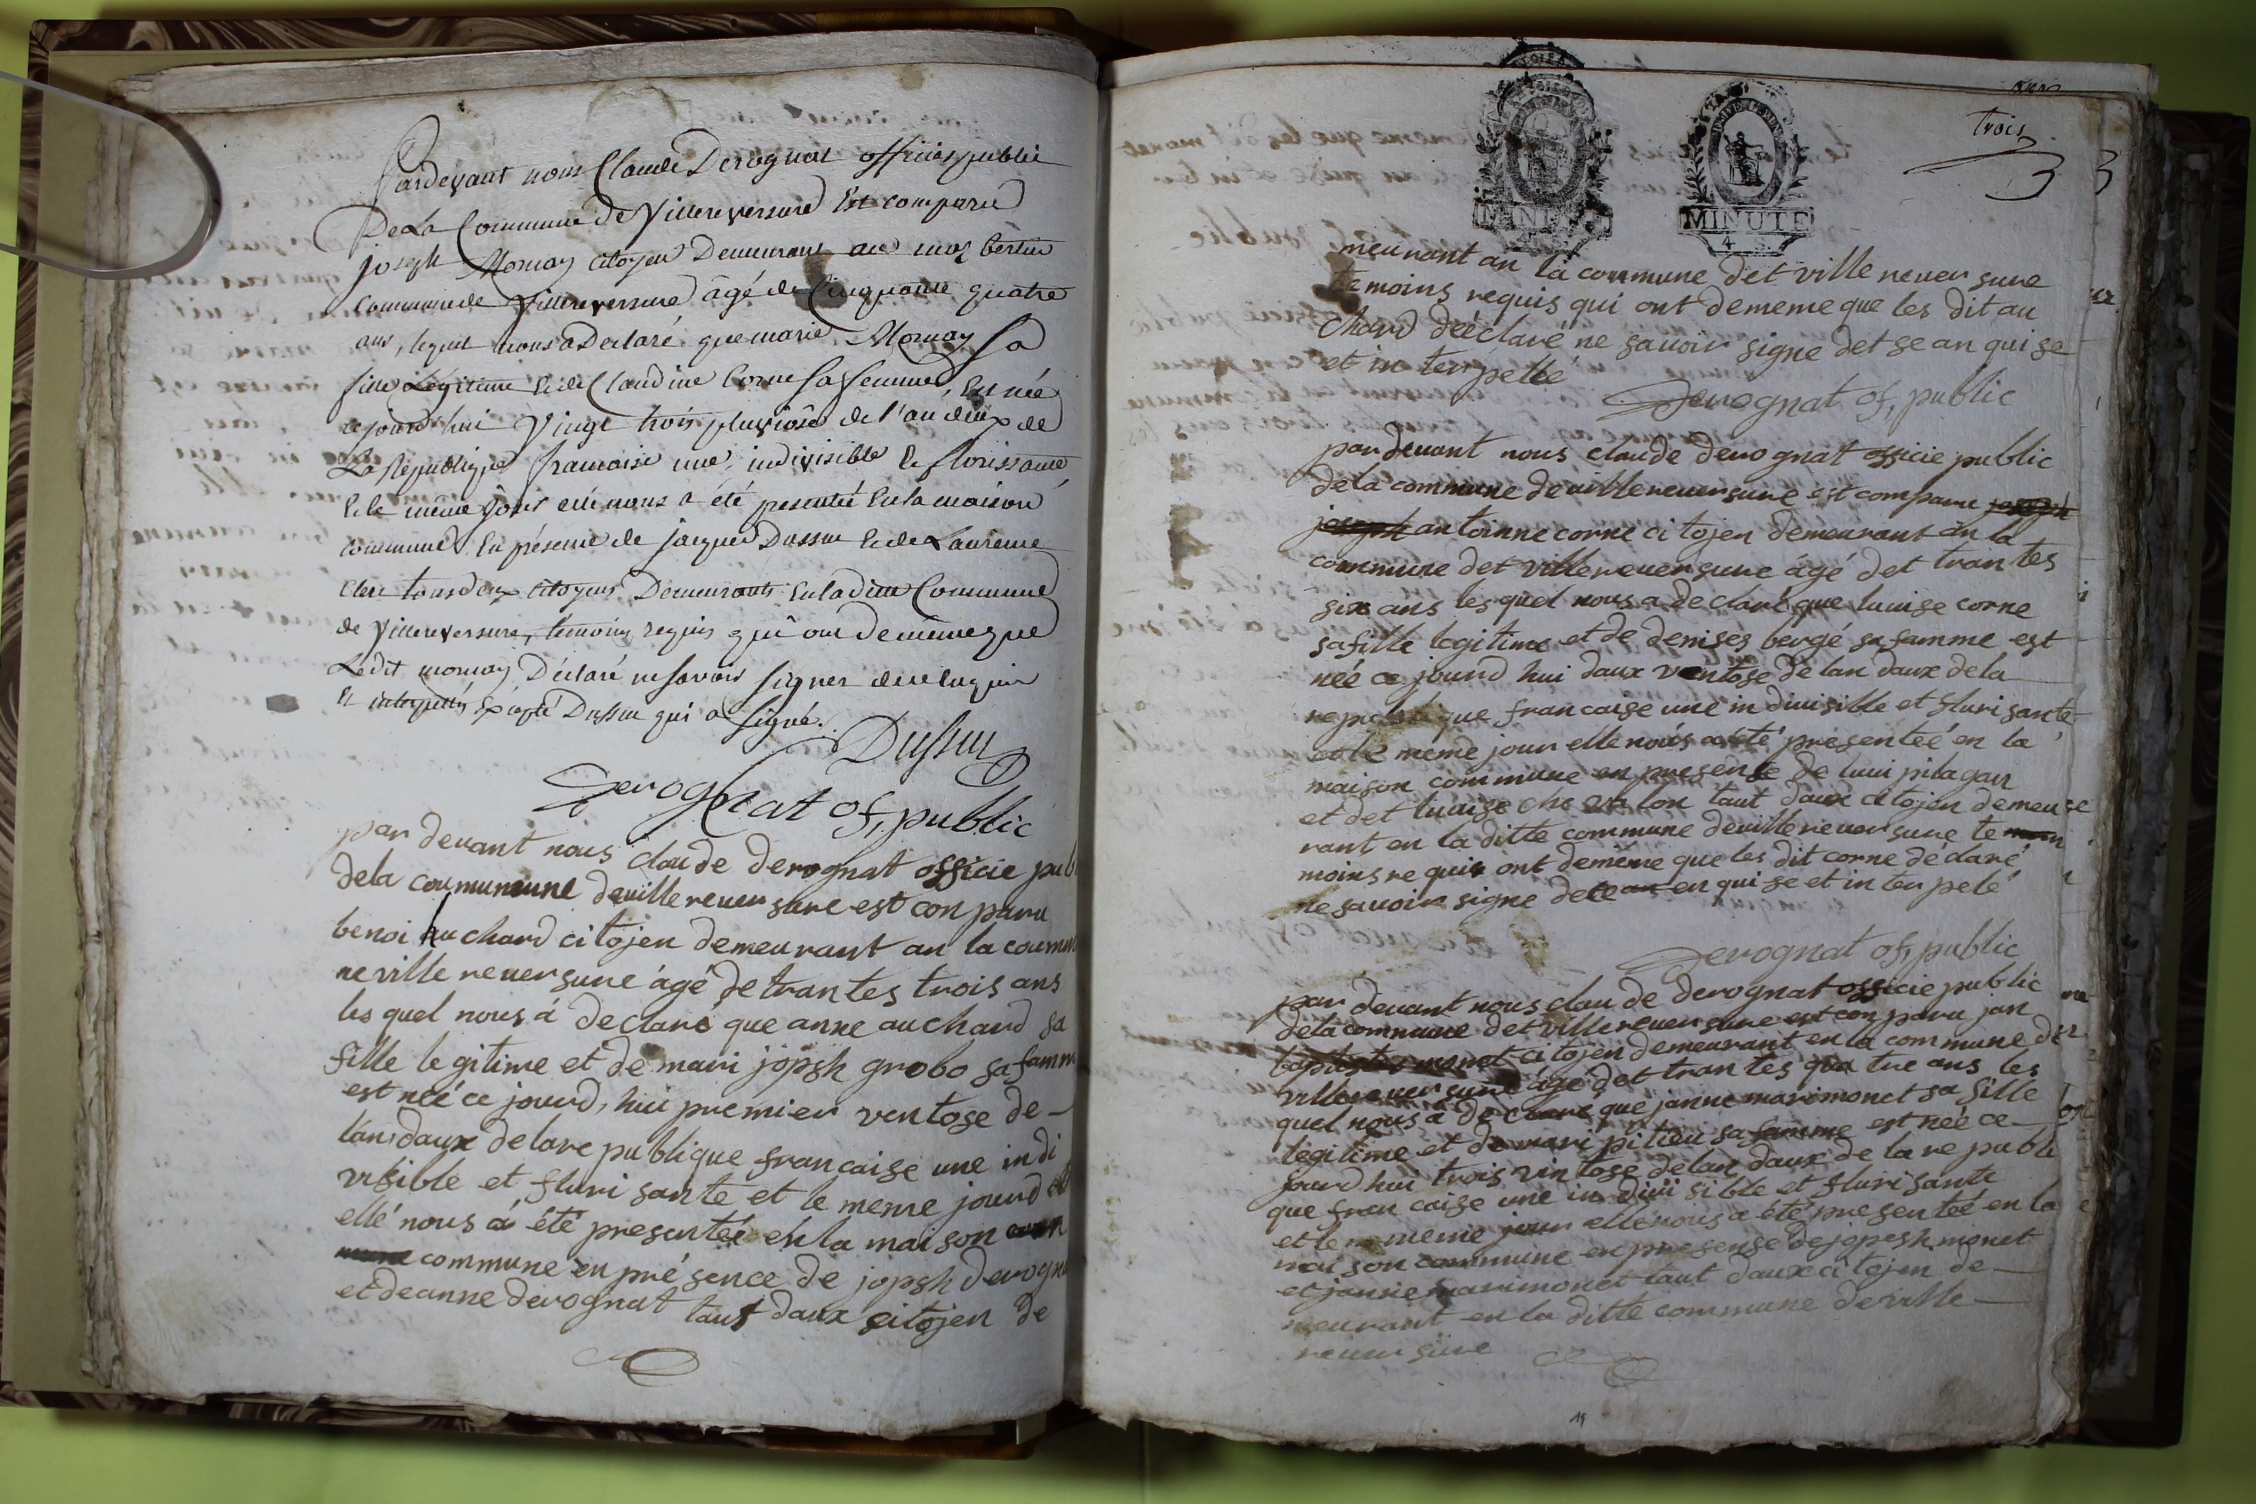 Pardevant nous Claude Derognat officier public
De La Commune de Villereversure Est comparu
joseph Mornay citoyen Demeurant au mas bertin
Commune de Villereversure âgé de Cinquante quatre
ans, lequel nous a Declaré que marie Mornay Sa
fille Légitime & de Claudine Corne Sa femme, Est née
cejourd'hui Vingt trois pluviôse de l'an deux de
La République francaise une, indivisible & florissante,
& le même jour elle nous a été presentée En la maison
commune En présence de jacques Dussur & de Laurence
clerc tous deux citoyens Demeurants En la ditte Commune
de Villereversure, témoins requis qui ont De même que
Ledit mornay Déclaré ne Savoir Signer de ce Enquis
Et interpellés Excepté Dussur qui a Signé.
Dussur
Derognat of, public
par devant nous claude derognat officie publ
dela coumuneune deuillereuersure est con paru
benoi auchard citojen demeurant an la coumu
ne ville reuersure ágé de trantes trois ans
les quel nous á declare que anne auchard sa
fille le gitime et de mari jopsh grobo sa famm
est néé ce jourd, hui premier ventose de -
lan daux de lare publique francaise une indi
visible et fluri sante et le meme jourd
ellé nous á été presentéé en la maison
commune en pré sence de jopsh derogna
et de anne derognat taut daux citojen de
trois
3
MINUTE
4
meurant an la commune det ville reuer sure
temoins requis qui ont dememe que les dit au
chard déclaré ne sauoir signe det se an qui se
et in ter pellé
Derognat of, public
par deuant nous claude derognat officie public
dela commune deuillereuersure est comparu joseph
joseph antoinne corne citojen demeurant an la
commune det villereuersure ágé det trantes
six ans les quel nous a declaré que luuise corne
safille legitime et de denises bergé sa famme est
néé ce jourd hui daux ventose delan daux dela
republique francaise une in diuisible et fluri sante
et le meme jour elle nous a été presentéé en la
maison commune en presense de luui pilagar
et det luuise che va lon taut daux citojen demeu
rant en la ditte commune deuillereuersure te
moins re quis ont dememe que les dit corne déclaré
ne sauoir signé de ce en qui se et in ter pelé
Derognat of, public
par deuant nous clau de derognat officie public
dela commune det villereuersure est con paru jan
baptiste monet citojen demeurant en la commune de
villereuersure ágé det trantes qua tre ans les
quel nous á declaré que janne mari monet sa fille
legitime et de mari pi lieu sa famme est néé ce
jourd hui trois vintose delan daux de la re publi
que fran caise une in diui sible et fluri sante
et le meme jour elle nous a été presentéé en la
mai son commune en presense de jopesh monet
et janne marimonet taut daux citojen de
meurant en la ditte commune deville
reuersure
15